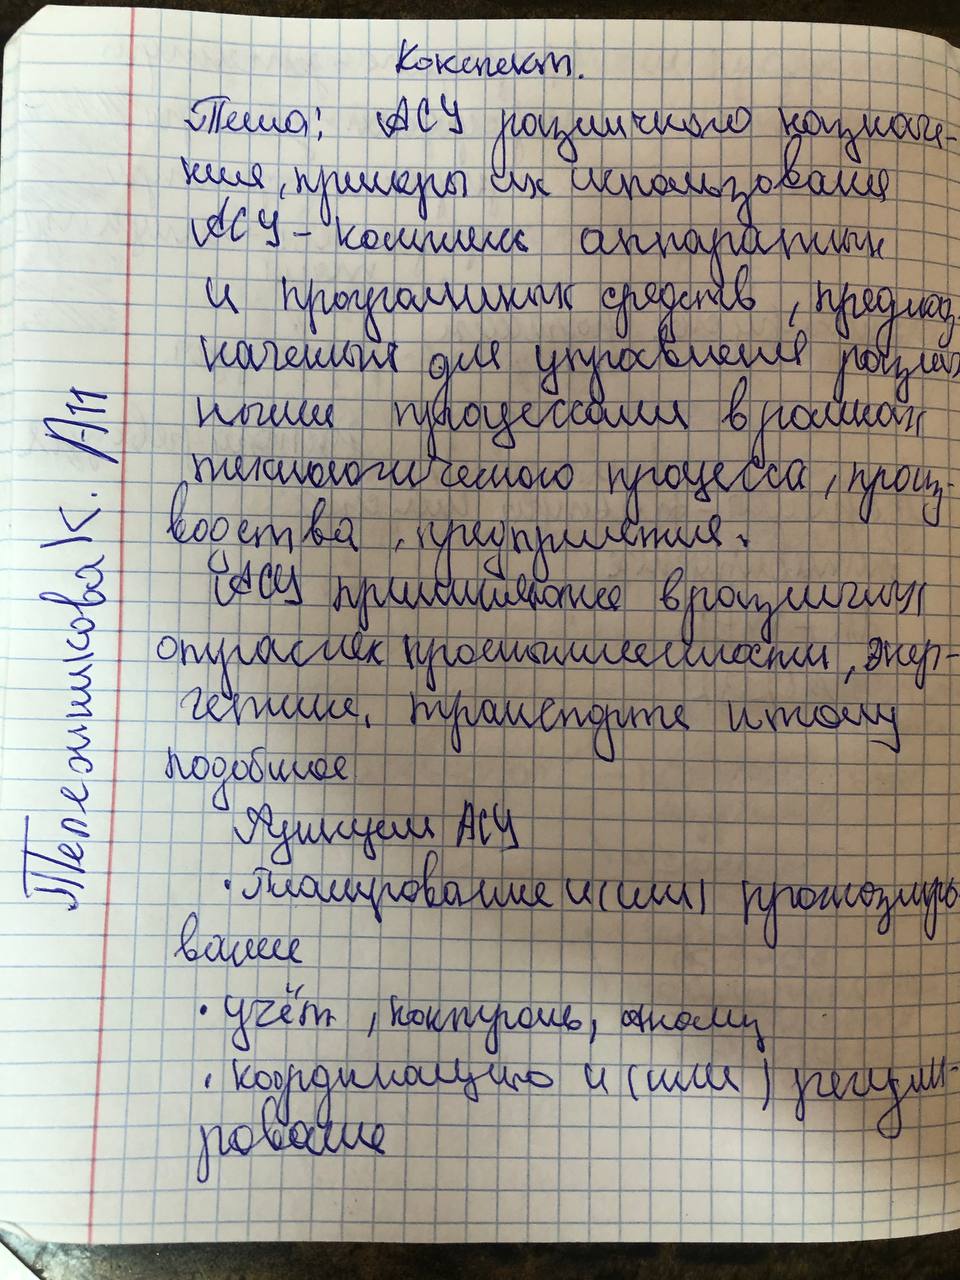 Конспект.
Тема: АСУ различного назначе-
ния, примеры их использования
АСУ – комплекс аппаратных
и программных средств, предназ-
наченный для управления различ
ными процессами в рамках
технологического процесса, произ-
водства, предприятия.
АСУ применяются в различных
отраслях промышленности, энер-
гетике, транспорте и тому
подобное
Функции АСУ
• Планирование и (или) прогнозиро
вание
• учёт, контроль, анализ
• координацию и (или) регули-
рование
Пепежникова К. А11